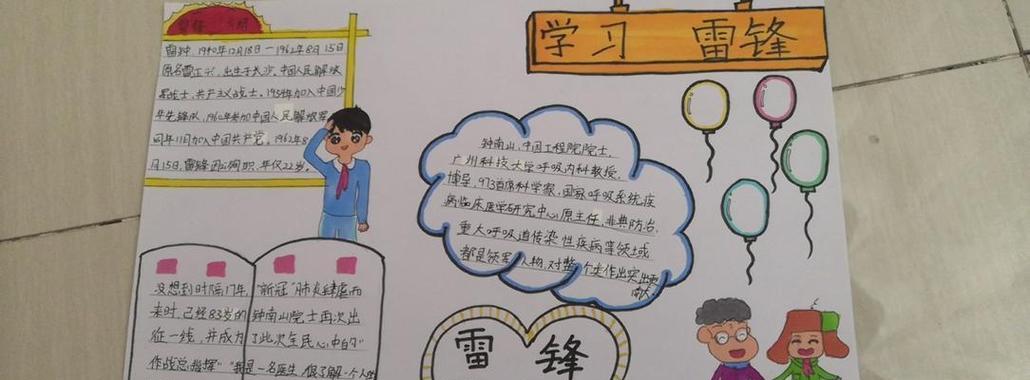 学习 雷锋
雷锋, 1940年12月18日－1962年8月15日
原名雷正兴, 出生于长沙, 中国人民解放
军战士, 共产主义战士, 1954年加入中国少
年先锋队, 1960年参加中国人民解放军
同年11月加入中国共产党, 1962年8
月15日, 雷锋因公殉职, 年仅22岁。
钟南山, 中国工程院院士,
广州科技大学呼吸内科教授,
博导, 973首席科学家, 国家呼吸系统疾
病临床医学研究中心原主任, 非典防治,
重大呼吸道传染性疾病等领域
都是领军人物, 对整个 作出突出
献。
没想到时隔17年, "新冠"肺炎肆虐而
来时, 已经83岁的钟南山院士再次出
征一线, 并成为了此次全民心中的"
作战总指挥" "我是一名医生, 很了解一个人
雷 锋